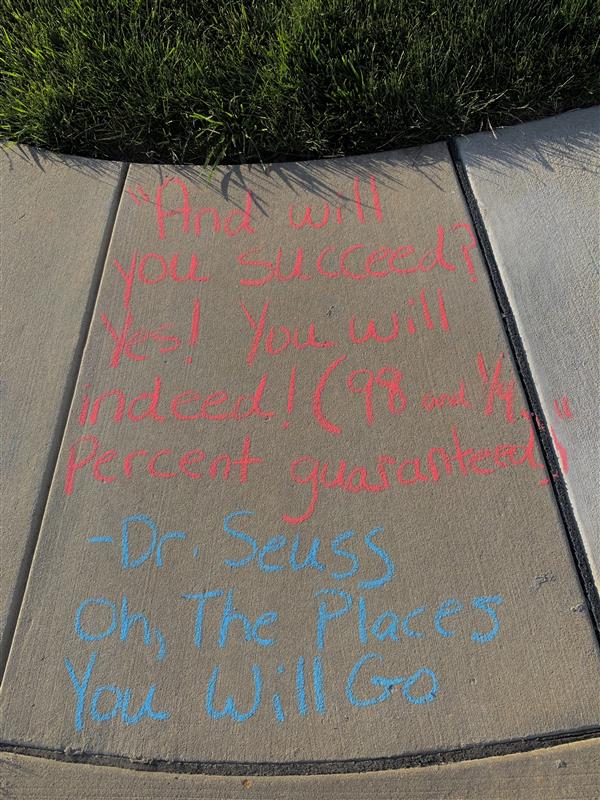 "And will
you succeed?
Yes! You will
indeed! (98 and 1/4
Percent guaranteed)"
-Dr. Seuss
Oh, The Places
You Will Go